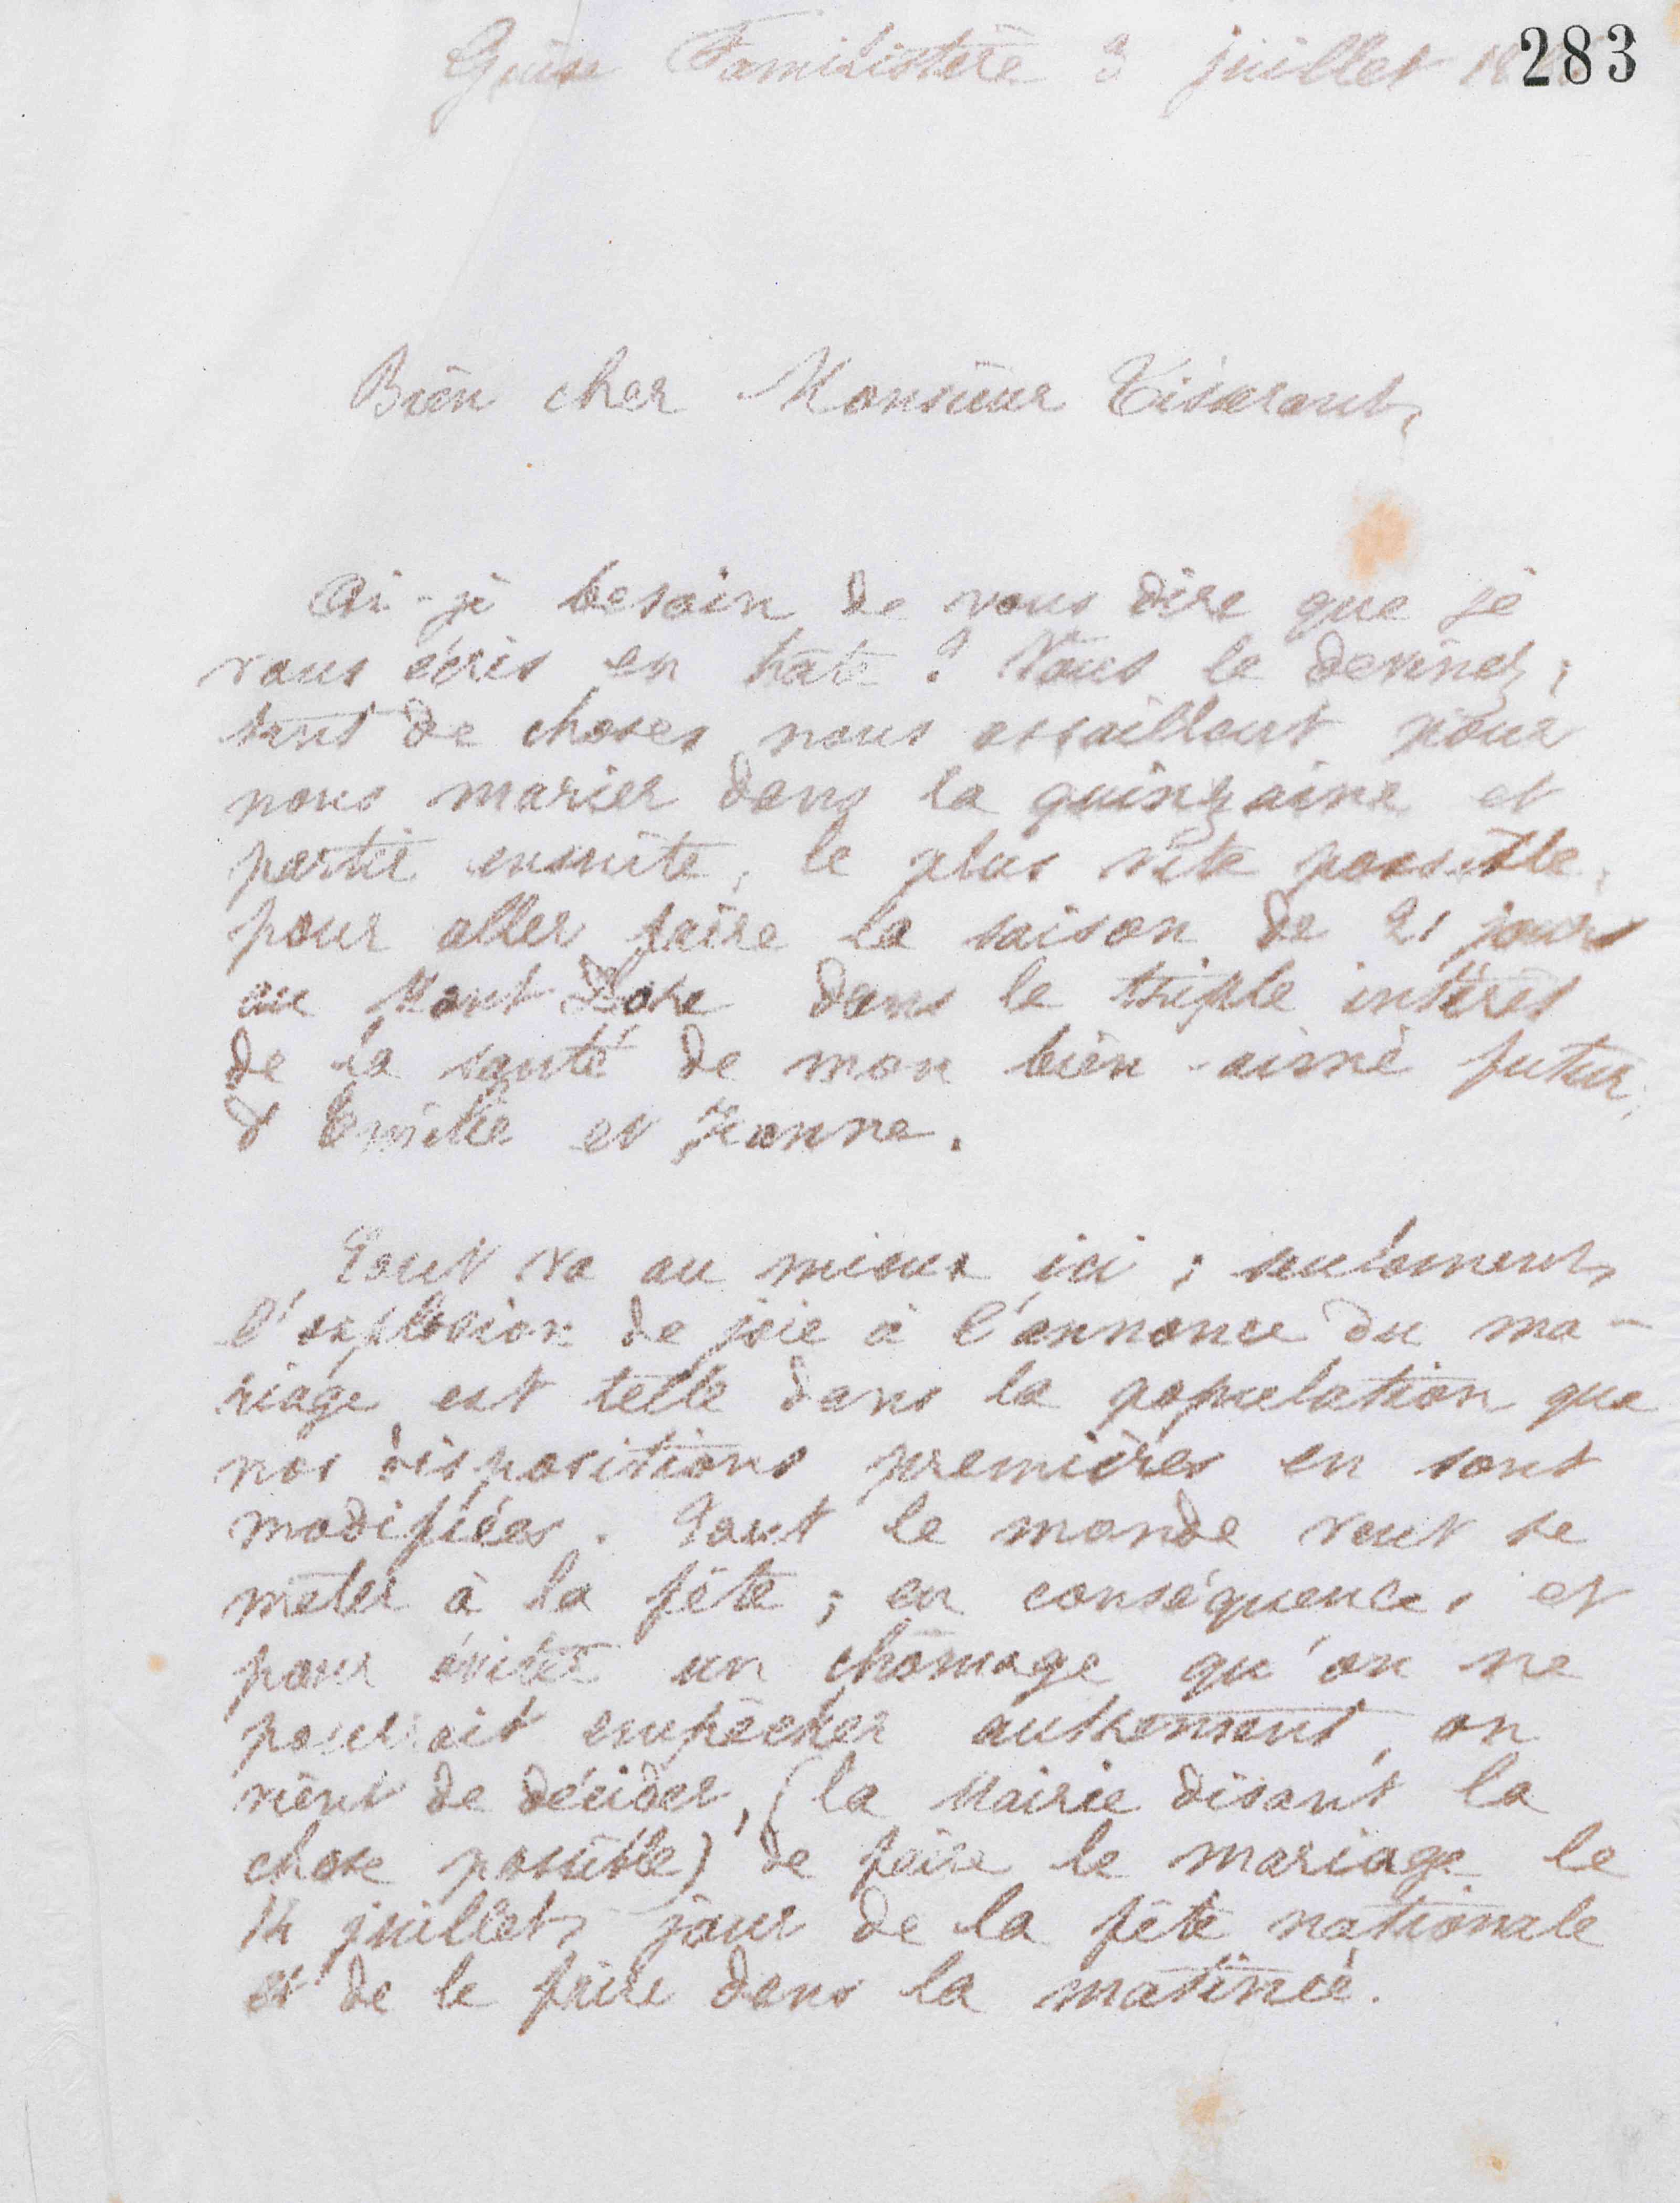 283
Guise Familistère 3 juillet 18
Bien cher Monsieur Tisserant,
Ai-je besoin de vous dire que je
vous écris en hâte ? Vous le devinez ;
tant de choses nous assaillent pour
nous marier dans la quinzaine et
partir ensuite, le plus vite possible,
pour aller faire la saison de 21 jours
au Mont Dore dans le triple intérêt
de la santé de mon bien-aimé futur,
d'Emilie et Jeanne.
Tout va au mieux ici ; seulement,
l'explosion de joie à l'annonce du ma-
riage est telle dans la population que
nos dispositions premières en sont
modifiées. Tout le monde veut se
mêler à la fête ; en conséquence, et
pour éviter un chômage qu'on ne
pourrait empêcher autrement, on
vient de décider, (la Mairie disant la
chose possible) de faire le mariage le
14 juillet, jour de la fête nationale
et de le faire dans la matinée.